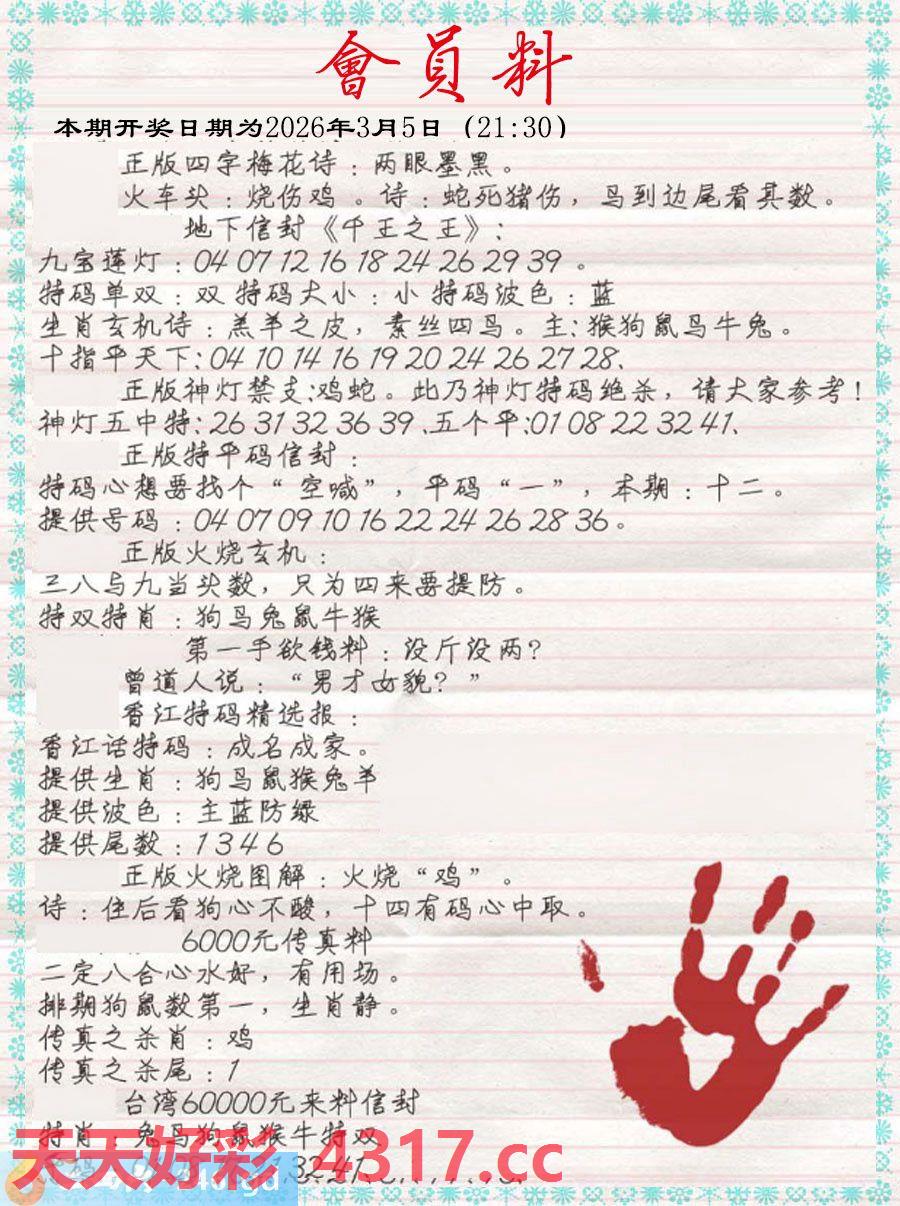 會員料
本期开奖日期为2026年3月5日（21:30）
正版四字梅花诗：两眼墨黑。
火车头：烧伤鸡。诗：蛇死猪伤，鸟到边尾看其数。
地下信封《千王之王》：
九宝莲灯：04 07 12 16 18 24 26 29 39 。
特码单双：双 特码大小：小 特码波色：蓝
生肖玄机诗：羔羊之皮，素丝四鸟。主：猴狗鼠鸟牛兔。
十指平天下：04 10 14 16 19 20 24 26 27 28、
正版神灯禁支：鸡蛇。此乃神灯特码绝杀，请大家参考！
神灯五中特：26 31 32 36 39 、五个平：01 08 22 32 41、
正版特平码信封：
特码心想要找个“空喊”，平码“一”，本期：十二。
提供号码：04 07 09 10 16 22 24 26 28 36。
正版火烧玄机：
三八与九当头数，只为四来要提防。
特双特肖：狗鸟兔鼠牛猴
第一手欲钱料：没斤没两？
曾道人说：“男才女貌？”
香江特码精选报：
香江话特码：成名成家。
提供生肖：狗鸟鼠猴兔羊
提供波色：主蓝防绿
提供尾数：1 3 4 6
正版火烧图解：火烧“鸡”。
诗：住后看狗心不酸，十四有码心中取。
6000元传真料
二定八合心水好，有用场。
排期狗鼠数第一，生肖静。
传真之杀肖：鸡
传真之杀尾：1
台湾60000元来料信封
特肖：兔鸟狗鼠猴牛特双
天天好彩 4317.cc